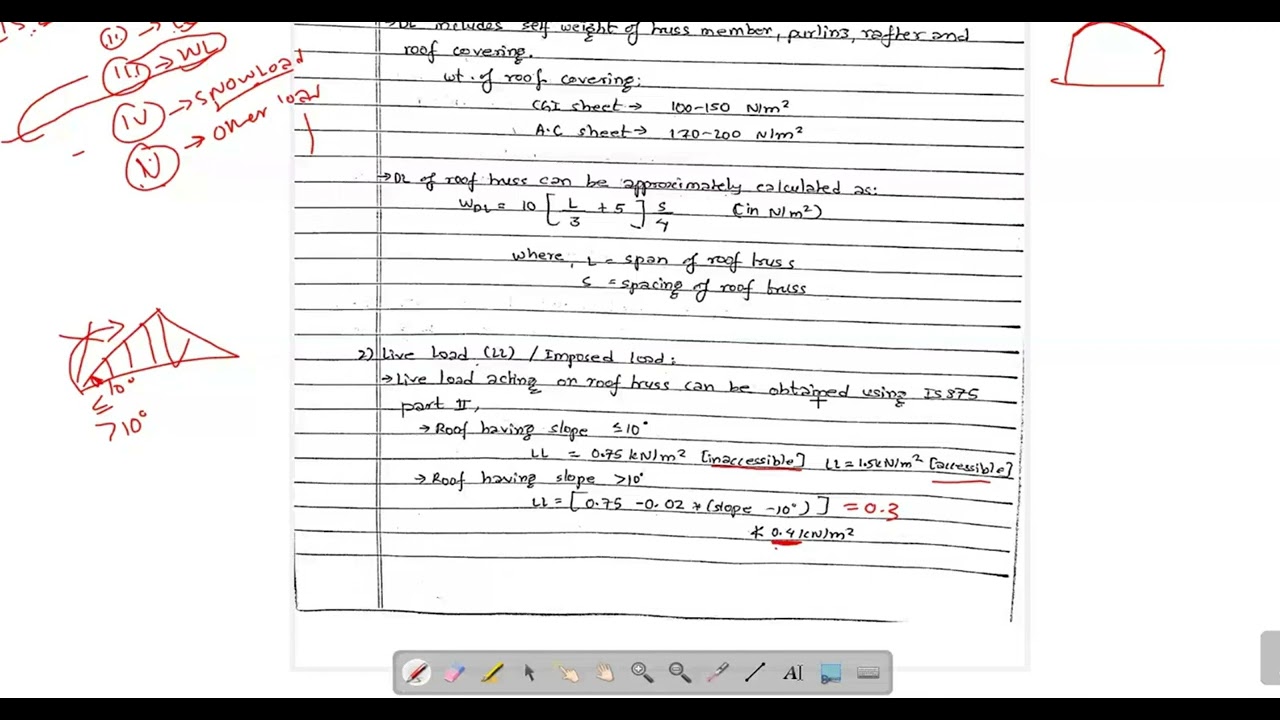 →DL includes self weight of truss member, purlins, rafter and
roof covering.
wt. of roof covering:
CGI sheet → 100-150 N/m²
A.C sheet → 170-200 N/m²
→DL of roof truss can be approximately calculated as:
W_DL = 10 [ L/3 + 5 ] S/4 (in N/m²)
where, L = span of roof truss
S = spacing of roof truss
2) Live Load (LL) / Imposed load:
→Live load acting on roof truss can be obtained using IS 875
part II,
→ Roof having slope ≤10°
LL = 0.75 kN/m² [inaccessible] LL = 1.5kN/m² [accessible]
→ Roof having slope >10°
LL = [ 0.75 - 0.02 * (slope - 10°) ] = 0.3
* 0.4 kN/m²
ii →
III → WL
IV → snowload
V → other load
10°
≤
>10°
AI